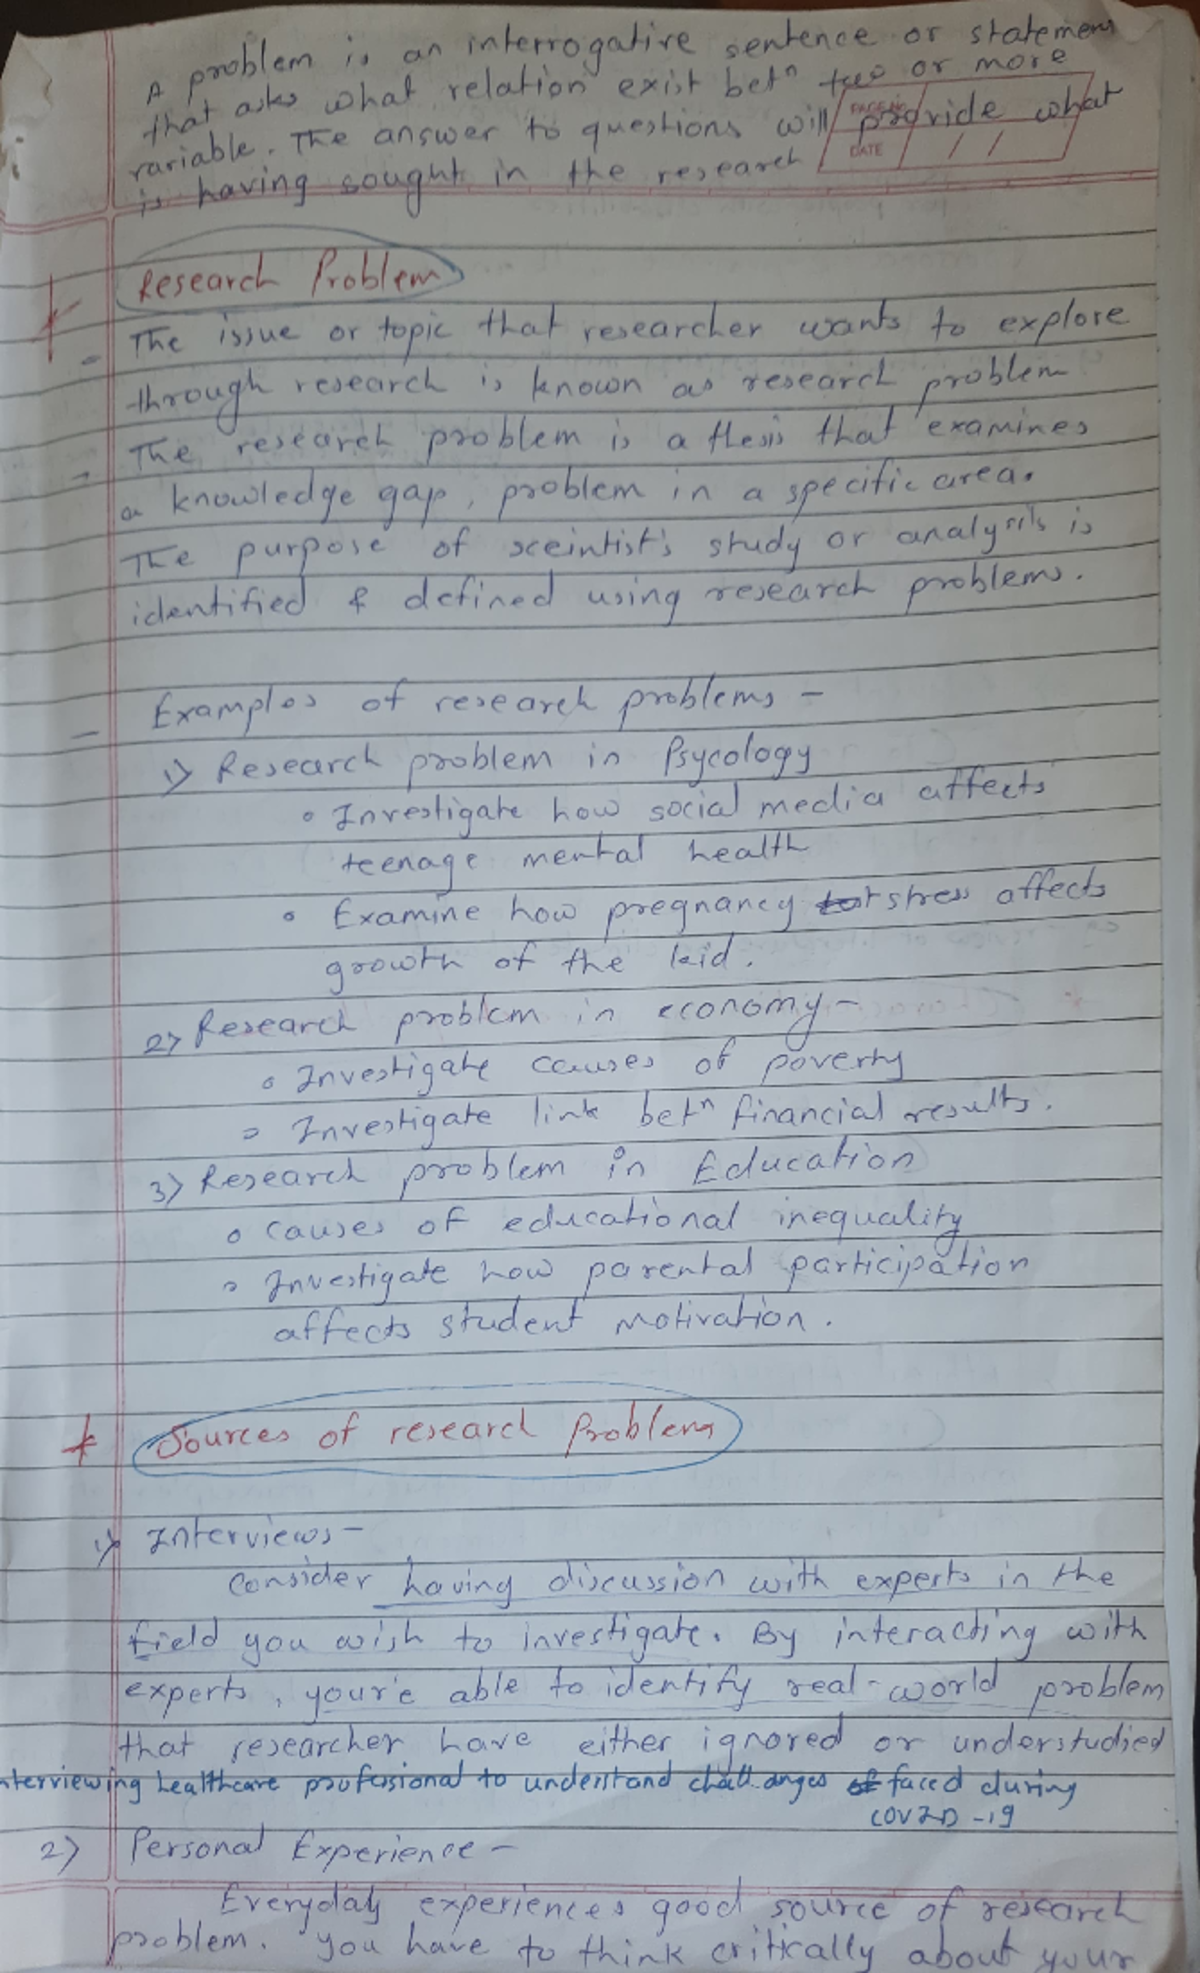 A problem is an interrogative sentence or statement
that asks what relation exist betn two or more
variable. The answer to questions will provide what
is having sought in the research
PAGE No.
DATE / /
* Research Problem
- The issue or topic that researcher wants to explore
through research is known as research problem
- The research problem is a thesis that examines
a knowledge gap, problem in a specific area.
The purpose of sceintist's study or analysis is
identified & defined using research problems.
- Examples of research problems -
1) Research problem in Psycology
• Investigate how social media affects
teenage mental health
• Examine how pregnancy stress affects
growth of the kid.
2) Research problem in economy -
• Investigate causes of poverty
• Investigate link betn financial results.
3) Research problem in Education
• causes of educational inequality
• Investigate how parental participation
affects student motivation.
* Sources of research Problem
1) Interviews -
Consider having discussion with experts in the
field you wish to investigate. By interacting with
experts, your'e able to identify real-world problem
that researcher have either ignored or understudied
nterviewing healthcare professional to understand challanges of faced during
COVID-19
2) Personal Experience -
Everyday experiences good source of research
problem. You have to think critically about your